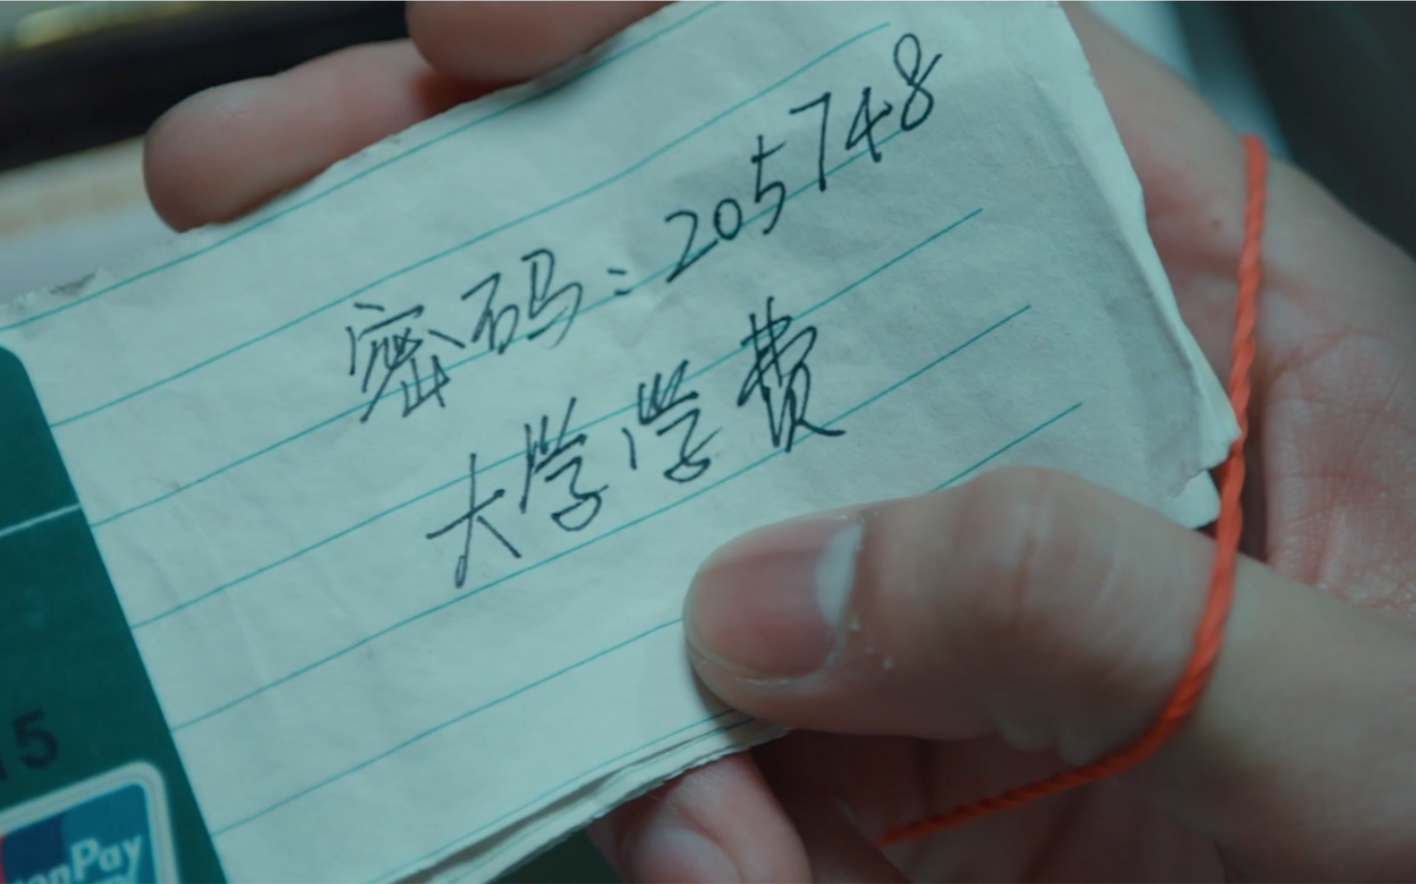 密码：205748
大学学费
15
onPay